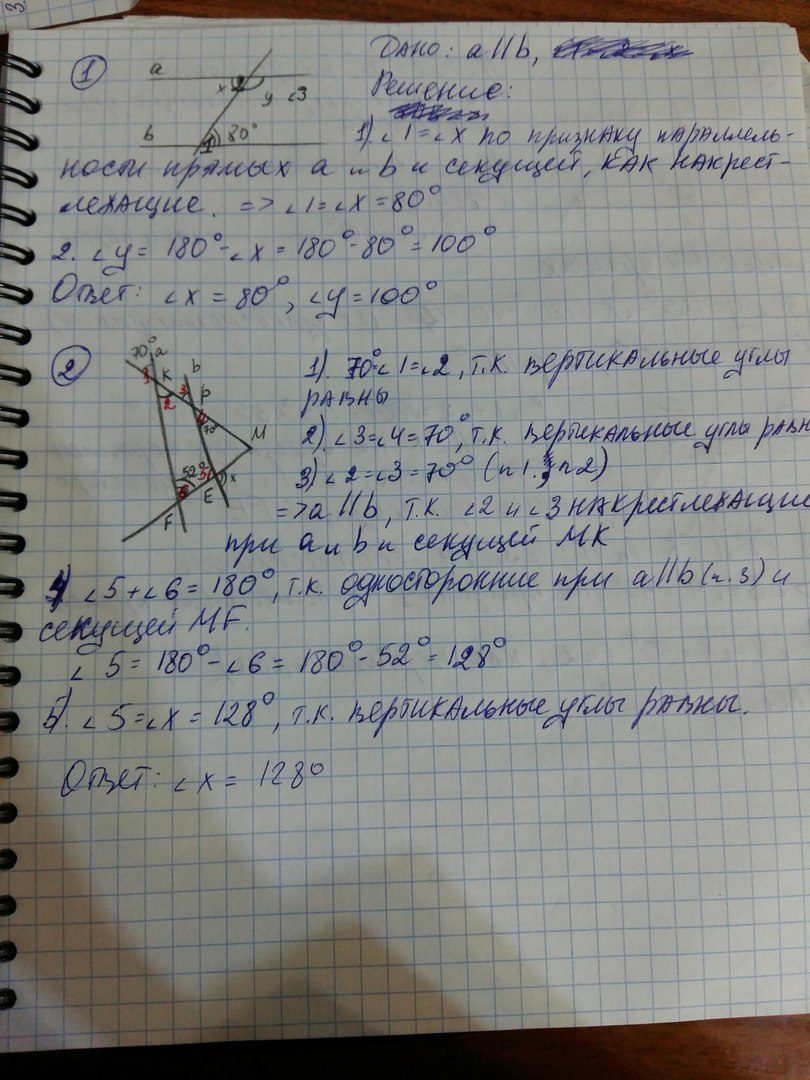 3.
1
Дано: a || b,
a
x
y ∠3
Решение:
b
1 80°
1). ∠1 = ∠x по признаку параллель-
ности прямых a и b и секущей, как накрест-
лежащие. => ∠1 = ∠x = 80°
2. ∠y = 180° - ∠x = 180° - 80° = 100°
Ответ: ∠x = 80°, ∠y = 100°
2
70° a
b
1 K
3 P
2
4
70
M
52° 5
6
E x
F
1). 70° ∠1 = ∠2, т.к. вертикальные углы
равны
2). ∠3 = ∠4 = 70°, т.к. вертикальные углы равн
3) ∠2 = ∠3 = 70° (п 1., п 2)
=> a || b, т.к. ∠2 и ∠3 накрестлежащие
при a и b и секущей MK
4) ∠5 + ∠6 = 180°, т.к. односторонние при a || b (п. 3) и
секущей MF.
∠5 = 180° - ∠6 = 180° - 52° = 128°
5). ∠5 = ∠x = 128°, т.к. вертикальные углы равны.
Ответ: ∠x = 128°